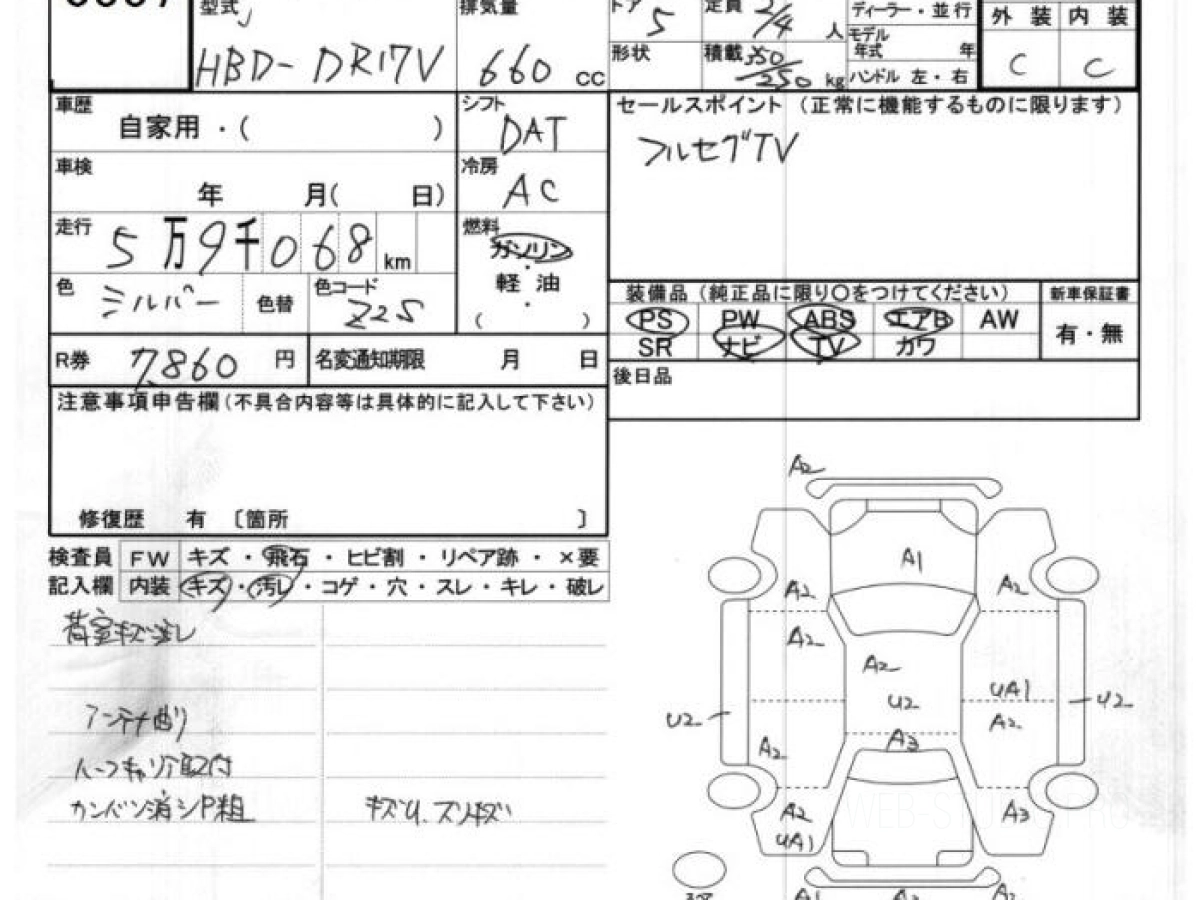 型式 排気量 ドア 5 定員 2/4 人 ディーラー・並行 外装 内装
HBD-DR17V 660 cc 形状 積載 350/250 kg モデル年式 年 C C
ハンドル 左・右
車歴 自家用・( ) シフト DAT セールスポイント (正常に機能するものに限ります)
フルセグTV
車検 年 月( 日) 冷房 AC
走行 5万9千068 km 燃料 ガソリン
・
軽油
・
( )
色 シルバー 色替 色コード Z2S
装備品 (純正品に限り〇をつけてください) 新車保証書
PS PW ABS エアB AW 有・無
SR ナビ TV カワ
R券 7,860 円 名変通知期限 月 日
後日品
注意事項申告欄(不具合内容等は具体的に記入して下さい)
修復歴 有 〔箇所 〕
検査員 FW キズ・飛石・ヒビ割・リペア跡・×要
記入欄 内装 キズ・汚レ・コゲ・穴・スレ・キレ・破レ
荷室キズ汚レ
アンテナ曲り
ルーフキャリア取付
カンバン消シP粗 キズU、スリキズ
A2
A1
A2 A2
A2
A2
U2 UA1
U2 A2 U2
A2 A3
A2 A3
UA1
WEB-ST
A1 A2 A2